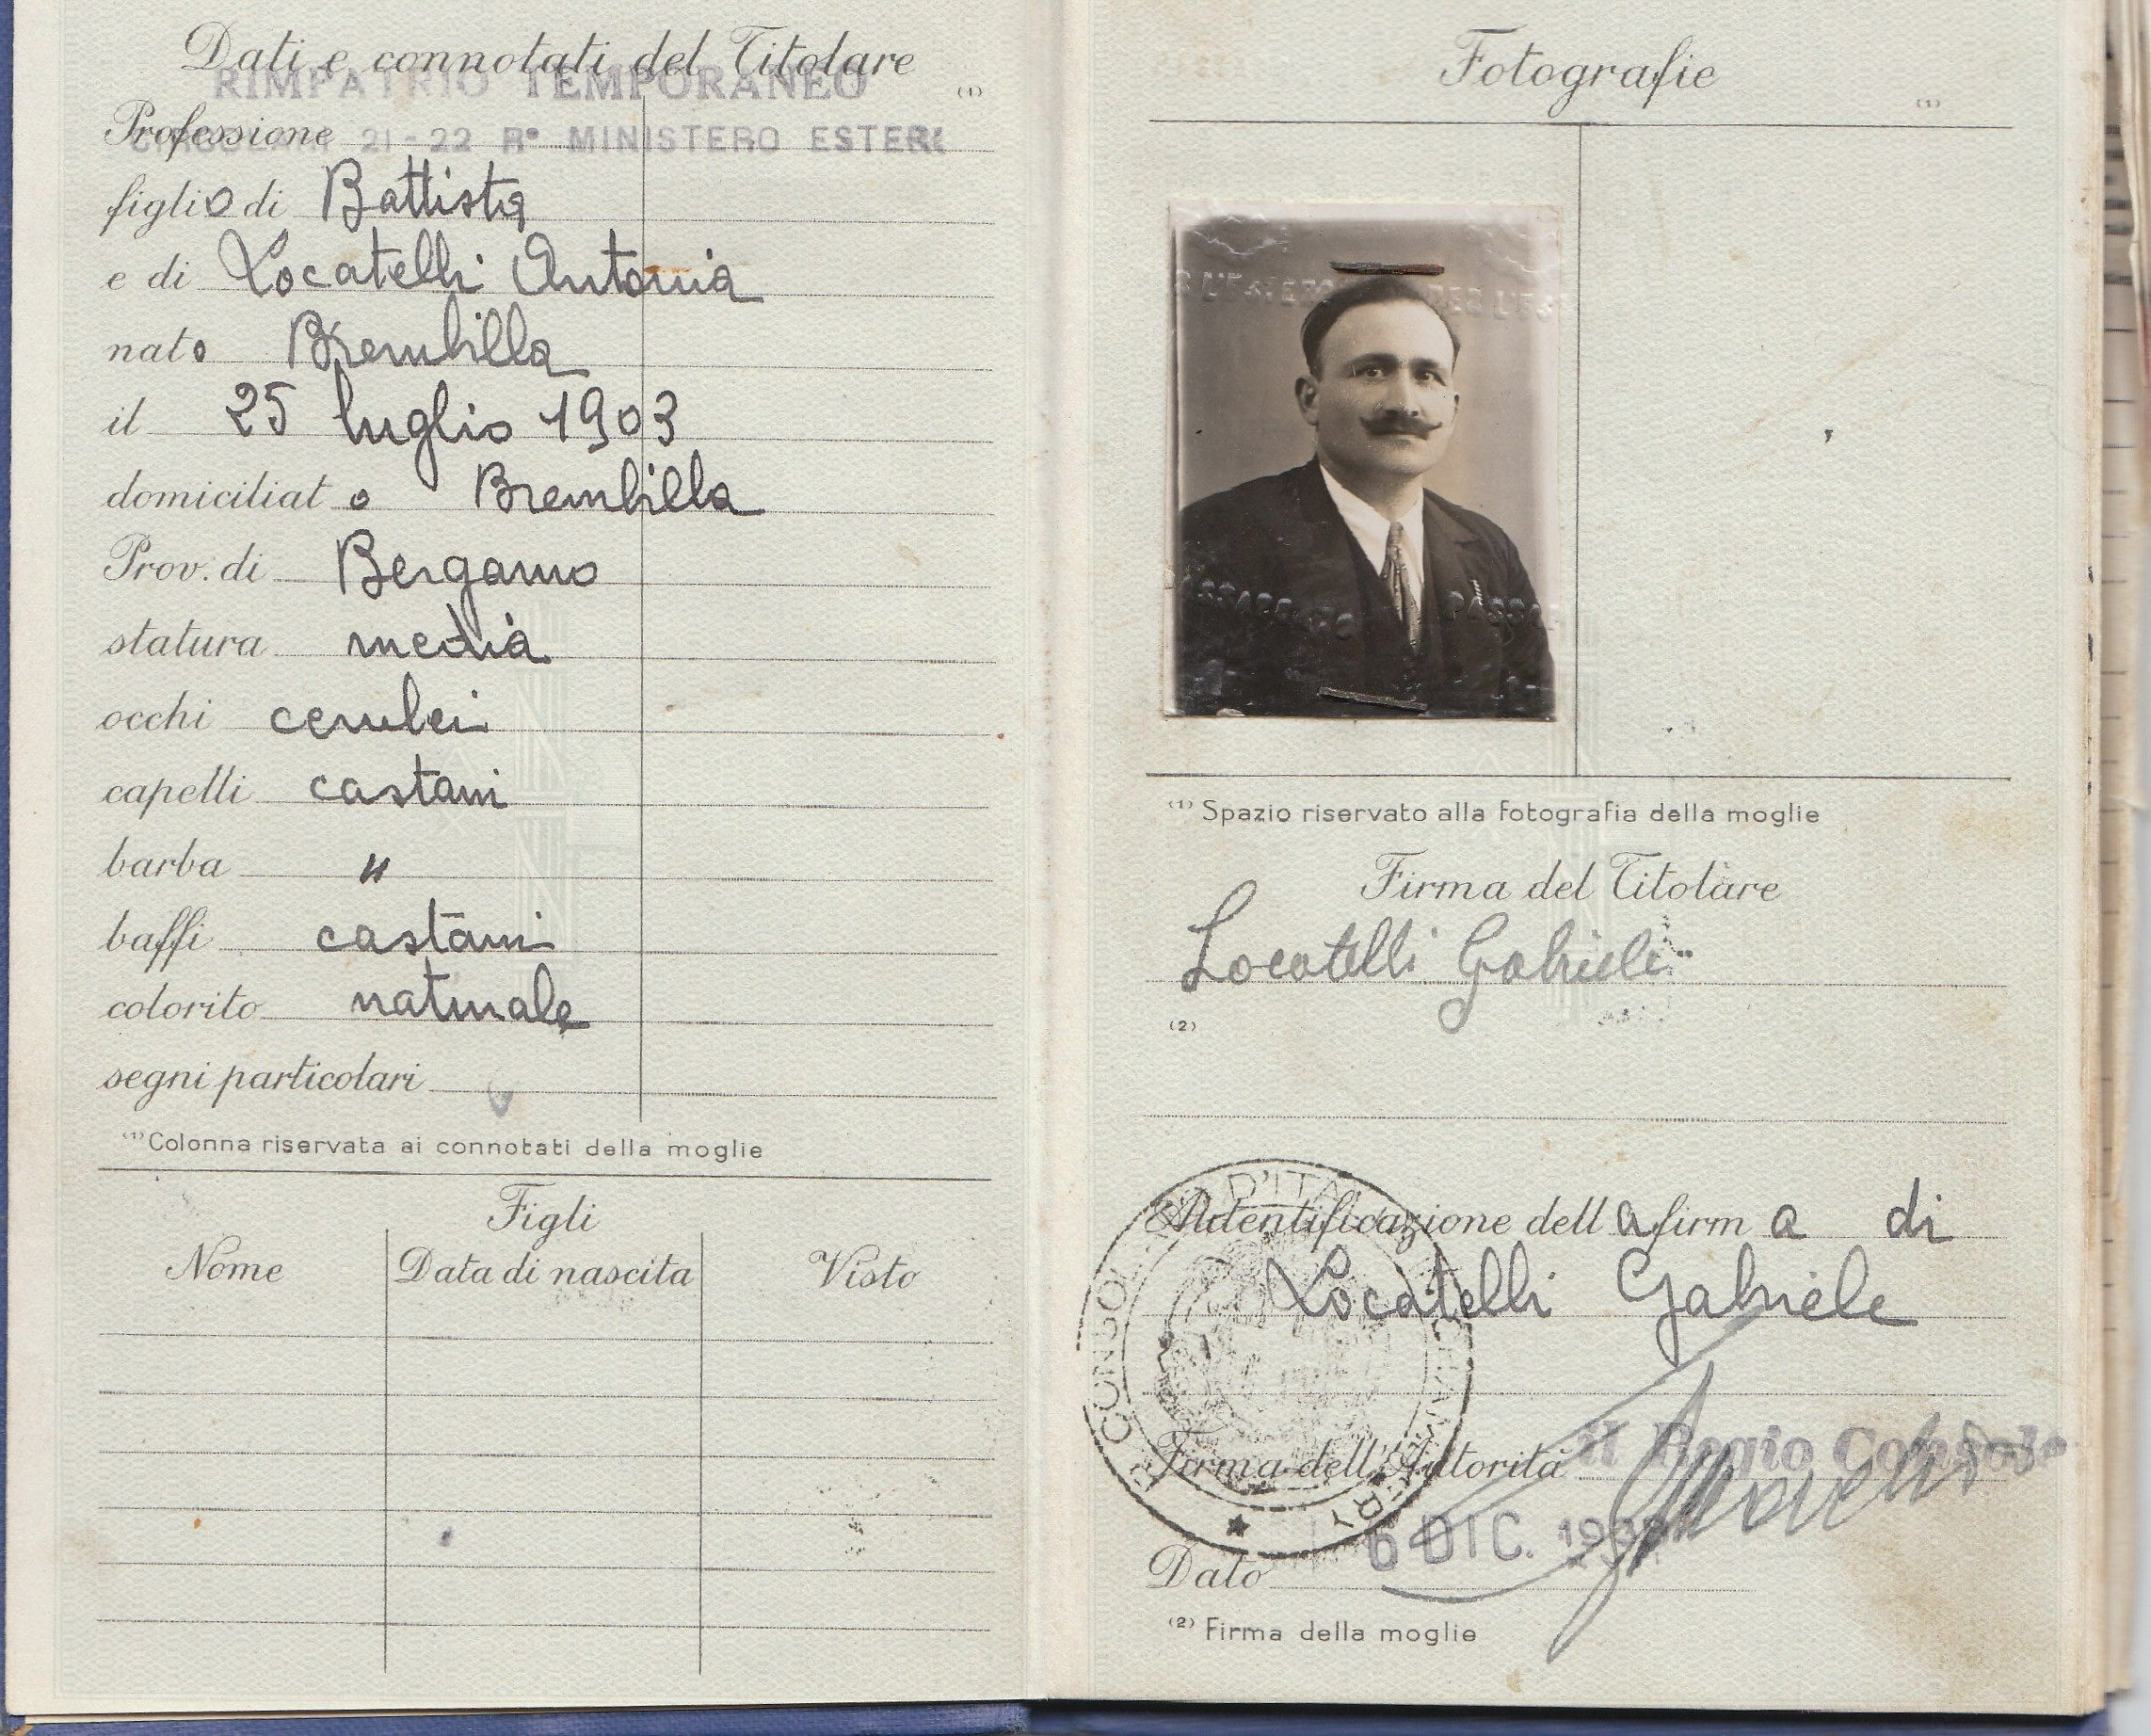 Dati e connotati del Titolare
RIMPATRIO TEMPORANEO
(1)
Professione
21-22 Rº MINISTERO ESTERI
figlio di Battista
e di Locatelli Antonia
nato Brembilla
il 25 luglio 1903
domiciliato Brembilla
Prov. di Bergamo
statura media
occhi cerulei
capelli castani
barba "
baffi castani
colorito naturale
segni particolari
(1) Colonna riservata ai connotati della moglie
Figli
Nome Data di nascita Visto
Fotografie
(1)
(1) Spazio riservato alla fotografia della moglie
Firma del Titolare
Locatelli Gabriele
(2)
Autentificazione della firma di
Locatelli Gabriele
Firma dell'Autorità Il Regio Console
6 DIC.
Dato
(2) Firma della moglie